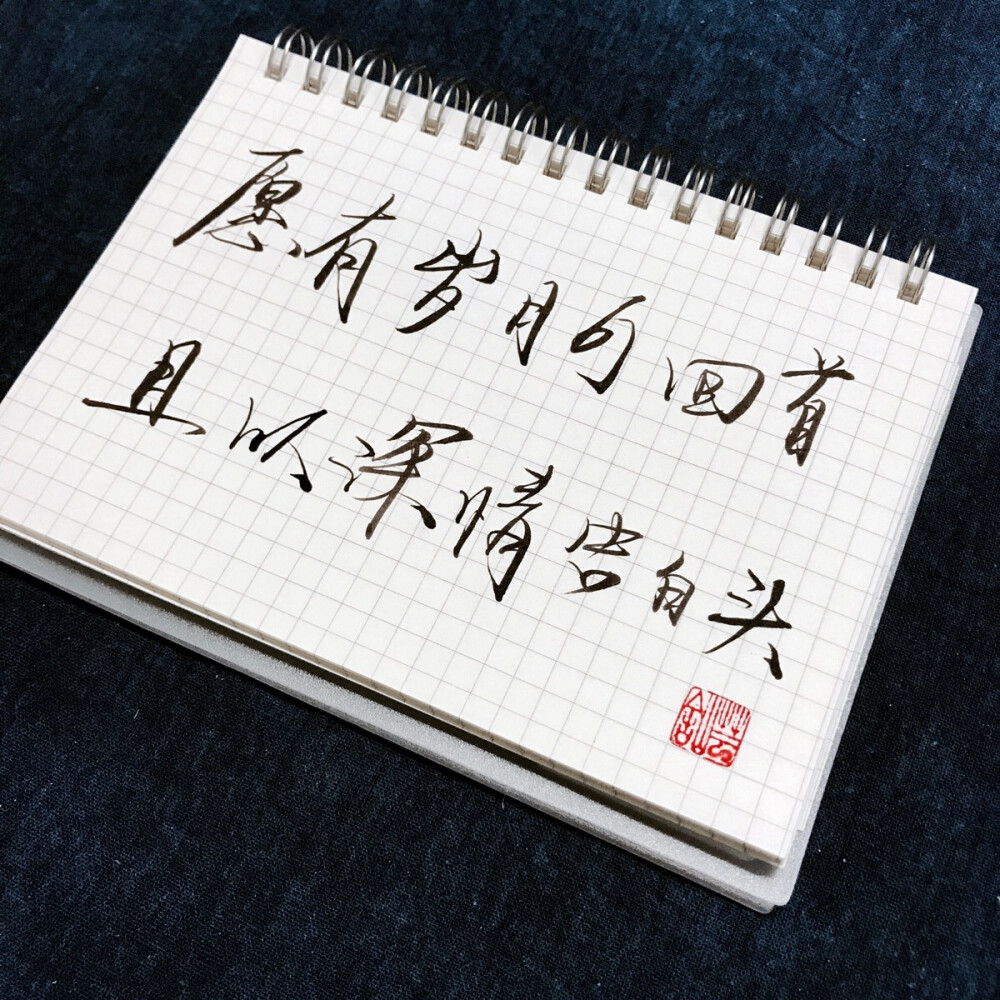 愿有岁月可回首
且以深情告白头